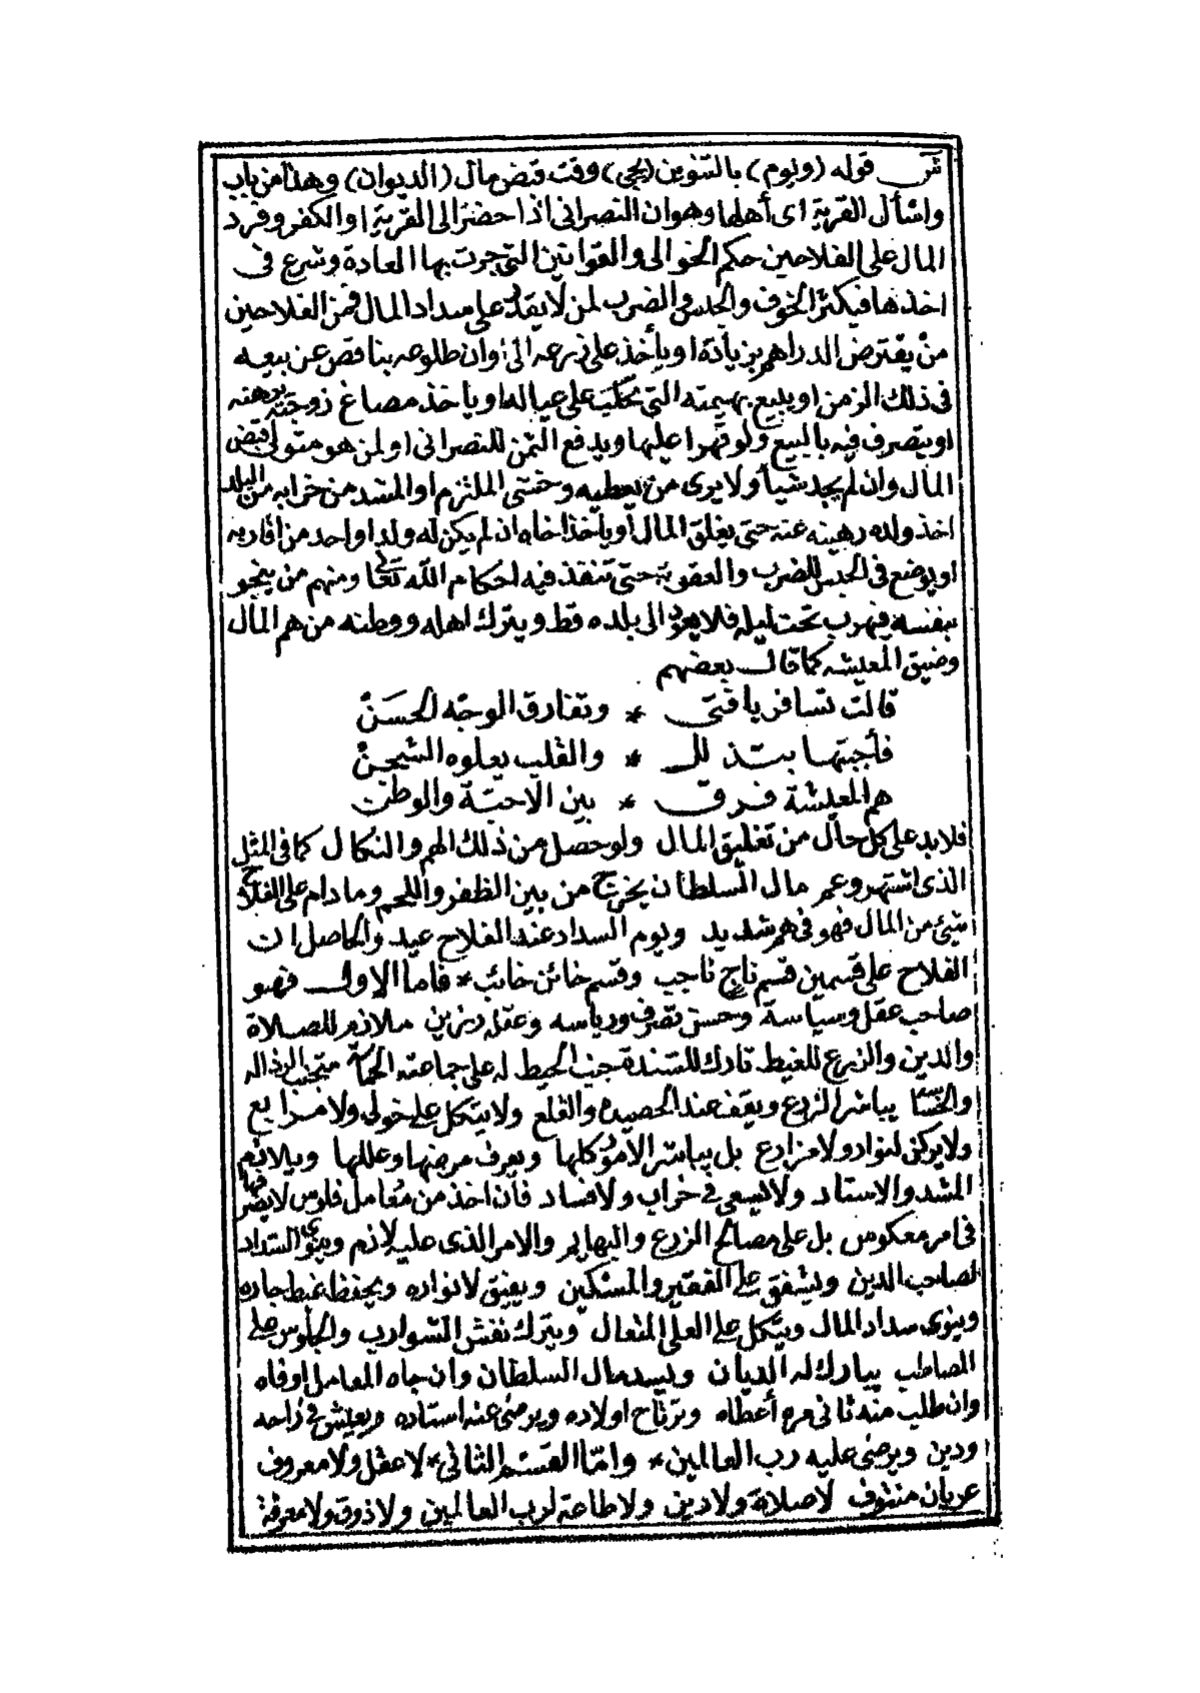 ش قوله (ويوم) بالتنوين (يجى) وقت قبض مال (الديوان) وهذا من باب
واسأل القرية اى أهلها وهو ان النصرانى اذا حضر الى القرية او الكفر وفرد
المال على الفلاحين حكم الخوالى والقوانين التى جرت بها العادة وشرع فى
اخذها فيكثر الخوف والحبس والضرب لمن لا يقدر على سداد المال فمن الفلاحين
من يقترض الدراهم بزيادة او يأخذ على زرعه الى أوان طلوعه بناقص عن بيعه
فى ذلك الزمن او يبيع بهيمته التى تحلب على عياله او ياخذ مصاغ زوجته يرهنه
او يتصرف فيه بالبيع ولو قهرا عليها ويدفع الثمن للنصرانى او لمن هو متولى قبض
المال وان لم يجد شيأ ولا يرى من يعطيه وخشى الملتزم او المشد من خرابه من البلد
اخذ ولده رهينه عنه حتى يغلق المال أو يأخذ اخاه ان لم يكن له ولد او احد من اقاربه
او يوضع فى الحبس للضرب والعقوبة حتى تنفذ فيه احكام الله تعالى ومنهم من ينجو
بنفسه فيهرب تحت ليله فلا يعود الى بلده قط ويترك اهله ووطنه من هم المال
وضيق المعيشه كما قال بعضهم
قالت تسافر يا فتى * وتفارق الوجه الحسن
فأجبتها بتذلل * والقلب يعلوه الشجن
هم المعيشة فرق * بين الاحبة والوطن
فلا بد على كل حال من تغليق المال ولو حصل من ذلك الهم والنكال كما فى المثل
الذى اشتهر وعم مال السلطان يخرج من بين الظفر واللحم وما دام على الفلاح
شيئ من المال فهو فى هم شديد ويوم السداد عند الفلاح عيد والحاصل ان
الفلاح على قسمين قسم ناج ناجب وقسم خائن خائب * فاما الاول فهو
صاحب عقل وسياسة وحسن تصرف ورياسه وعقله رزين ملازم للصلاة
والدين والزرع للغيط تارك للتندة جنب الحيط له على جماعته متجنب الرذاله
يباشر الزرع ويقف عند الحصيده والقلع ولا يتكل على خولى ولا مزارع
ولا يركن لنوار ولا مزارع بل يباشر الامور كلها ويعرف مرضها وعللها ويلائم
المشد والاستاد ولا يسعى فى خراب ولا فساد فان اخذ من مُعامل فلوس لا يصرفها
فى امر معكوس بل على مصالح الزرع والبهايم والامر الذى عليه لازم وينوى السداد
لصاحب الدين ويشفق على الفقير والمسكين ويفيق لانواره ويحفظ غيط جاره
وينوى سداد المال ويتكل على العلى المتعال ويترك نفش الشوارب والجلوس على
المصاطب يبارك له الديان ويسد مال السلطان وان جاه المعامل اوفاه
وان طلب منه ثانى مره أعطاه وترتاح اولاده ويرضى عنه استاده ويعيش فى راحه
ودين ويرضى عليه رب العالمين * وامّا القسم الثانى * لا عقل ولا معروف
عريان منتوف لا صلاة ولا دين ولا طاعة لرب العالمين ولا ذوق ولا معرفة